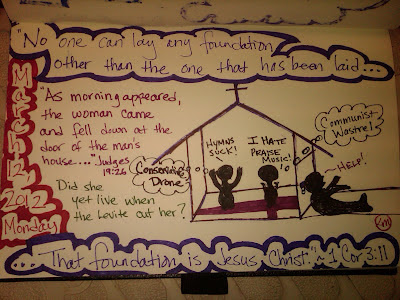 "No one can lay any foundation
other than the one that has been laid...
March-12
2012
Monday
"As morning appeared,
the woman came
and fell down at the
door of the man's
house...." Judges
19:26
Did she
yet live when
the Levite cut her?
Conservative
Drone
HYMNS
SUCK!
I HATE
PRAISE
MUSIC!
Communist
Wastrel
HELP!
KM
...That foundation is Jesus Christ."~1 Cor 3:11